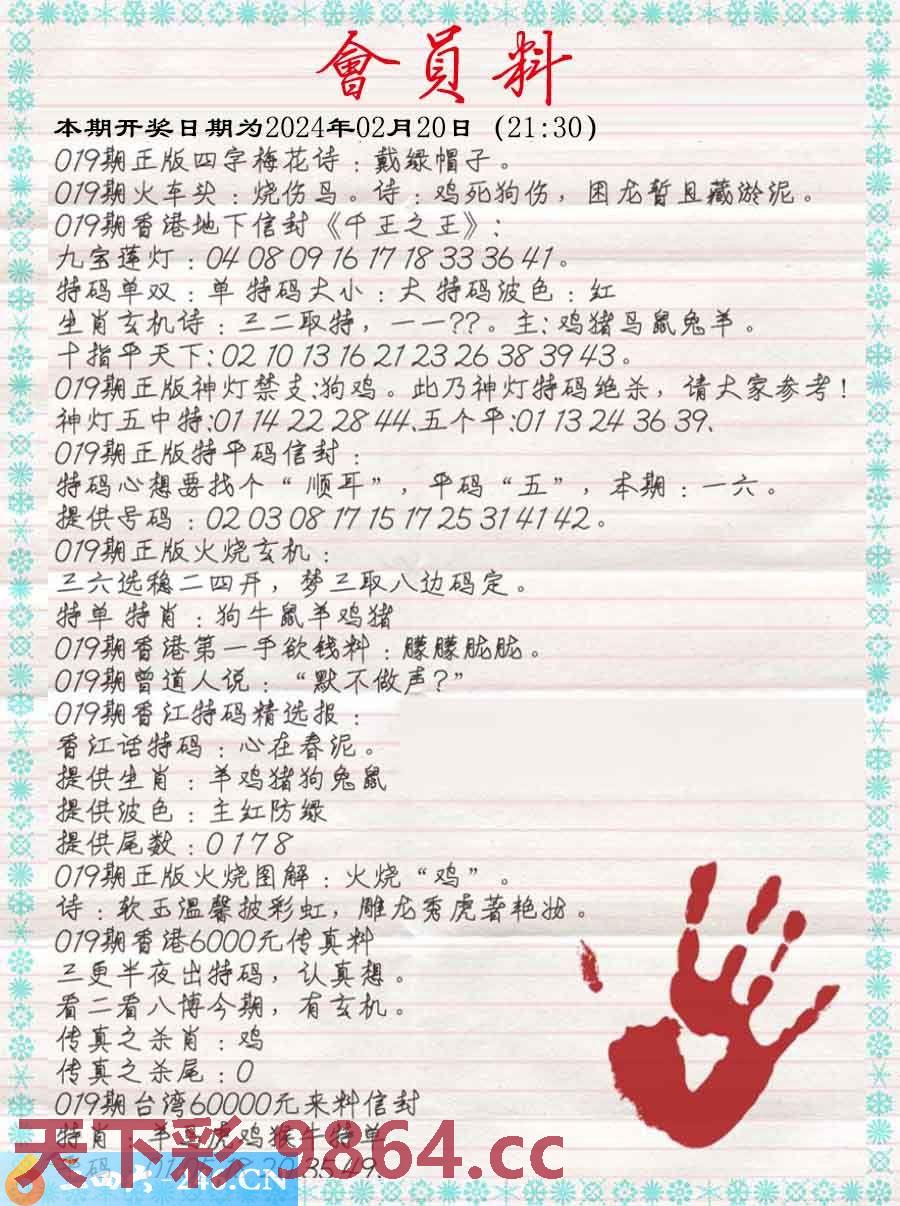 會員料
本期开奖日期为2024年02月20日（21:30）
019期正版四字梅花诗：戴绿帽子。
019期火车头：烧伤鸟。诗：鸡死狗伤，困龙暂且藏淤泥。
019期香港地下信封《千王之王》：
九宝莲灯：04 08 09 16 17 18 33 36 41。
特码单双：单 特码大小：大 特码波色：红
生肖玄机诗：三二取特，一一??。主：鸡猪鸟鼠兔羊。
十指平天下：02 10 13 16 21 23 26 38 39 43。
019期正版神灯禁支:狗鸡。此乃神灯特码绝杀，请大家参考！
神灯五中特:01 14 22 28 44、五个平:01 13 24 36 39、
019期正版特平码信封：
特码心想要找个“顺耳”，平码“五”，本期：一六。
提供号码：02 03 08 17 15 17 25 31 41 42。
019期正版火烧玄机：
三六选稳二四开，梦三取八边码定。
特单 特肖：狗牛鼠羊鸡猪
019期香港第一手欲钱料：朦朦胧胧。
019期曾道人说：“默不做声？”
019期香江特码精选报：
香江话特码：心在春泥。
提供生肖：羊鸡猪狗兔鼠
提供波色：主红防绿
提供尾数：0 1 7 8
019期正版火烧图解：火烧“鸡”。
诗：软玉温馨披彩虹，雕龙秀虎著艳妆。
019期香港6000元传真料
三更半夜出特码，认真想。
看二看八博今期，有玄机。
传真之杀肖：鸡
传真之杀尾：0
019期台湾60000元来料信封
特肖：羊马虎鸡猴牛特单
35 49、
天下彩.9864.cc
246.CN